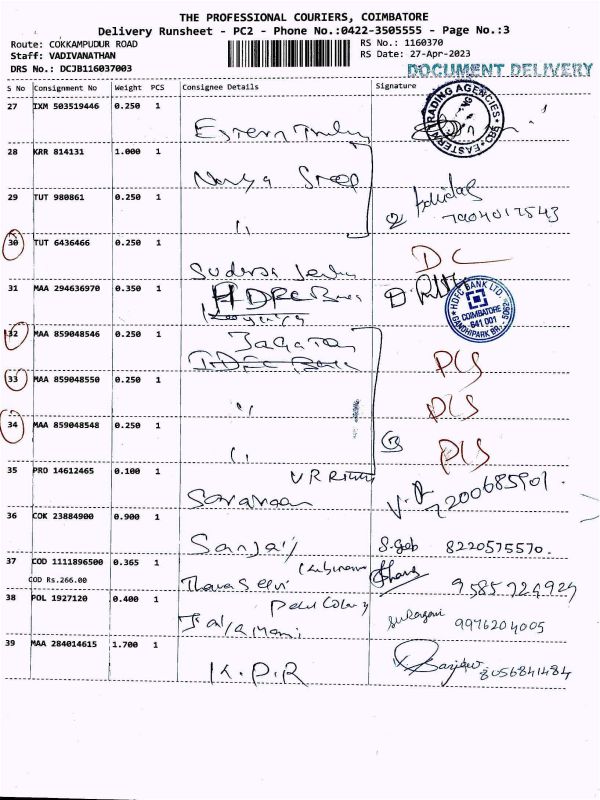 THE PROFESSIONAL COURIERS, COIMBATORE
Delivery Runsheet - PC2 - Phone No.:0422-3505555 - Page No.:3
Route: COKKAMPUDUR ROAD
RS No.: 1160370
Staff: VADIVANATHAN
RS Date: 27-Apr-2023
DRS No.: DCJB116037003
DOCUMENT DELIVERY
S No Consignment No Weight PCS Consignee Details Signature
27 IXM 503519446 0.250 1
EASTERN TRADING AGENCIES CBE
28 KRR 814131 1.000 1
29 TUT 980861 0.250 1
2 7904017543
30 TUT 6436466 0.250 1
DC
31 MAA 294636970 0.350 1 HDFC Bank
HDFC BANK LTD.
COIMBATORE
641 001
GANDHIPARK BR.
32 MAA 859048546 0.250 1
PCS
33 MAA 859048550 0.250 1 "
PCS
34 MAA 859048548 0.250 1 "
3 PCS
35 PRO 14612465 0.100 1
Saravanan 7200685901
36 COK 23884900 0.900 1
Sanjai 8220575570
37 COD 1111896500 0.365 1
COD Rs.266.00
Thavaselvi
38 POL 1927120 0.400 1
Jayamani 9976204005
39 MAA 284014615 1.700 1
K.P.R 8056841484